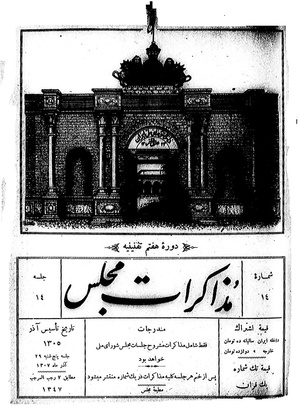 دورهٔ هفتم تقنینیه
شماره
۱۴
مذاکرات مجلس
جلسه
۱۴
قیمت اشتراک
داخله ایران سالیانه ده تومان
خارجه » دوازده تومان
قیمت تک شماره
یک قران
مندرجات
فقط شامل مذاکرات مشروح جلسات مجلس شورای ملی
خواهد بود
پس از ختم هر جلسه کلیه مذاکرات در یک شماره منتشر میشود
مطبعه مجلس
تاریخ تأسیس آذر
۱۳۰۵
جلسه پنج شنبه ۲۹
آذر ماه ۱۳۰۷
مطابق ۷ رجب المرجب
۱۳۴۷